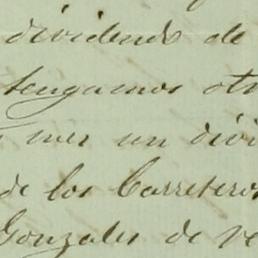 dividendo de
tengamos otr
mes un divi
de los Carreteros
Gonzales de ve